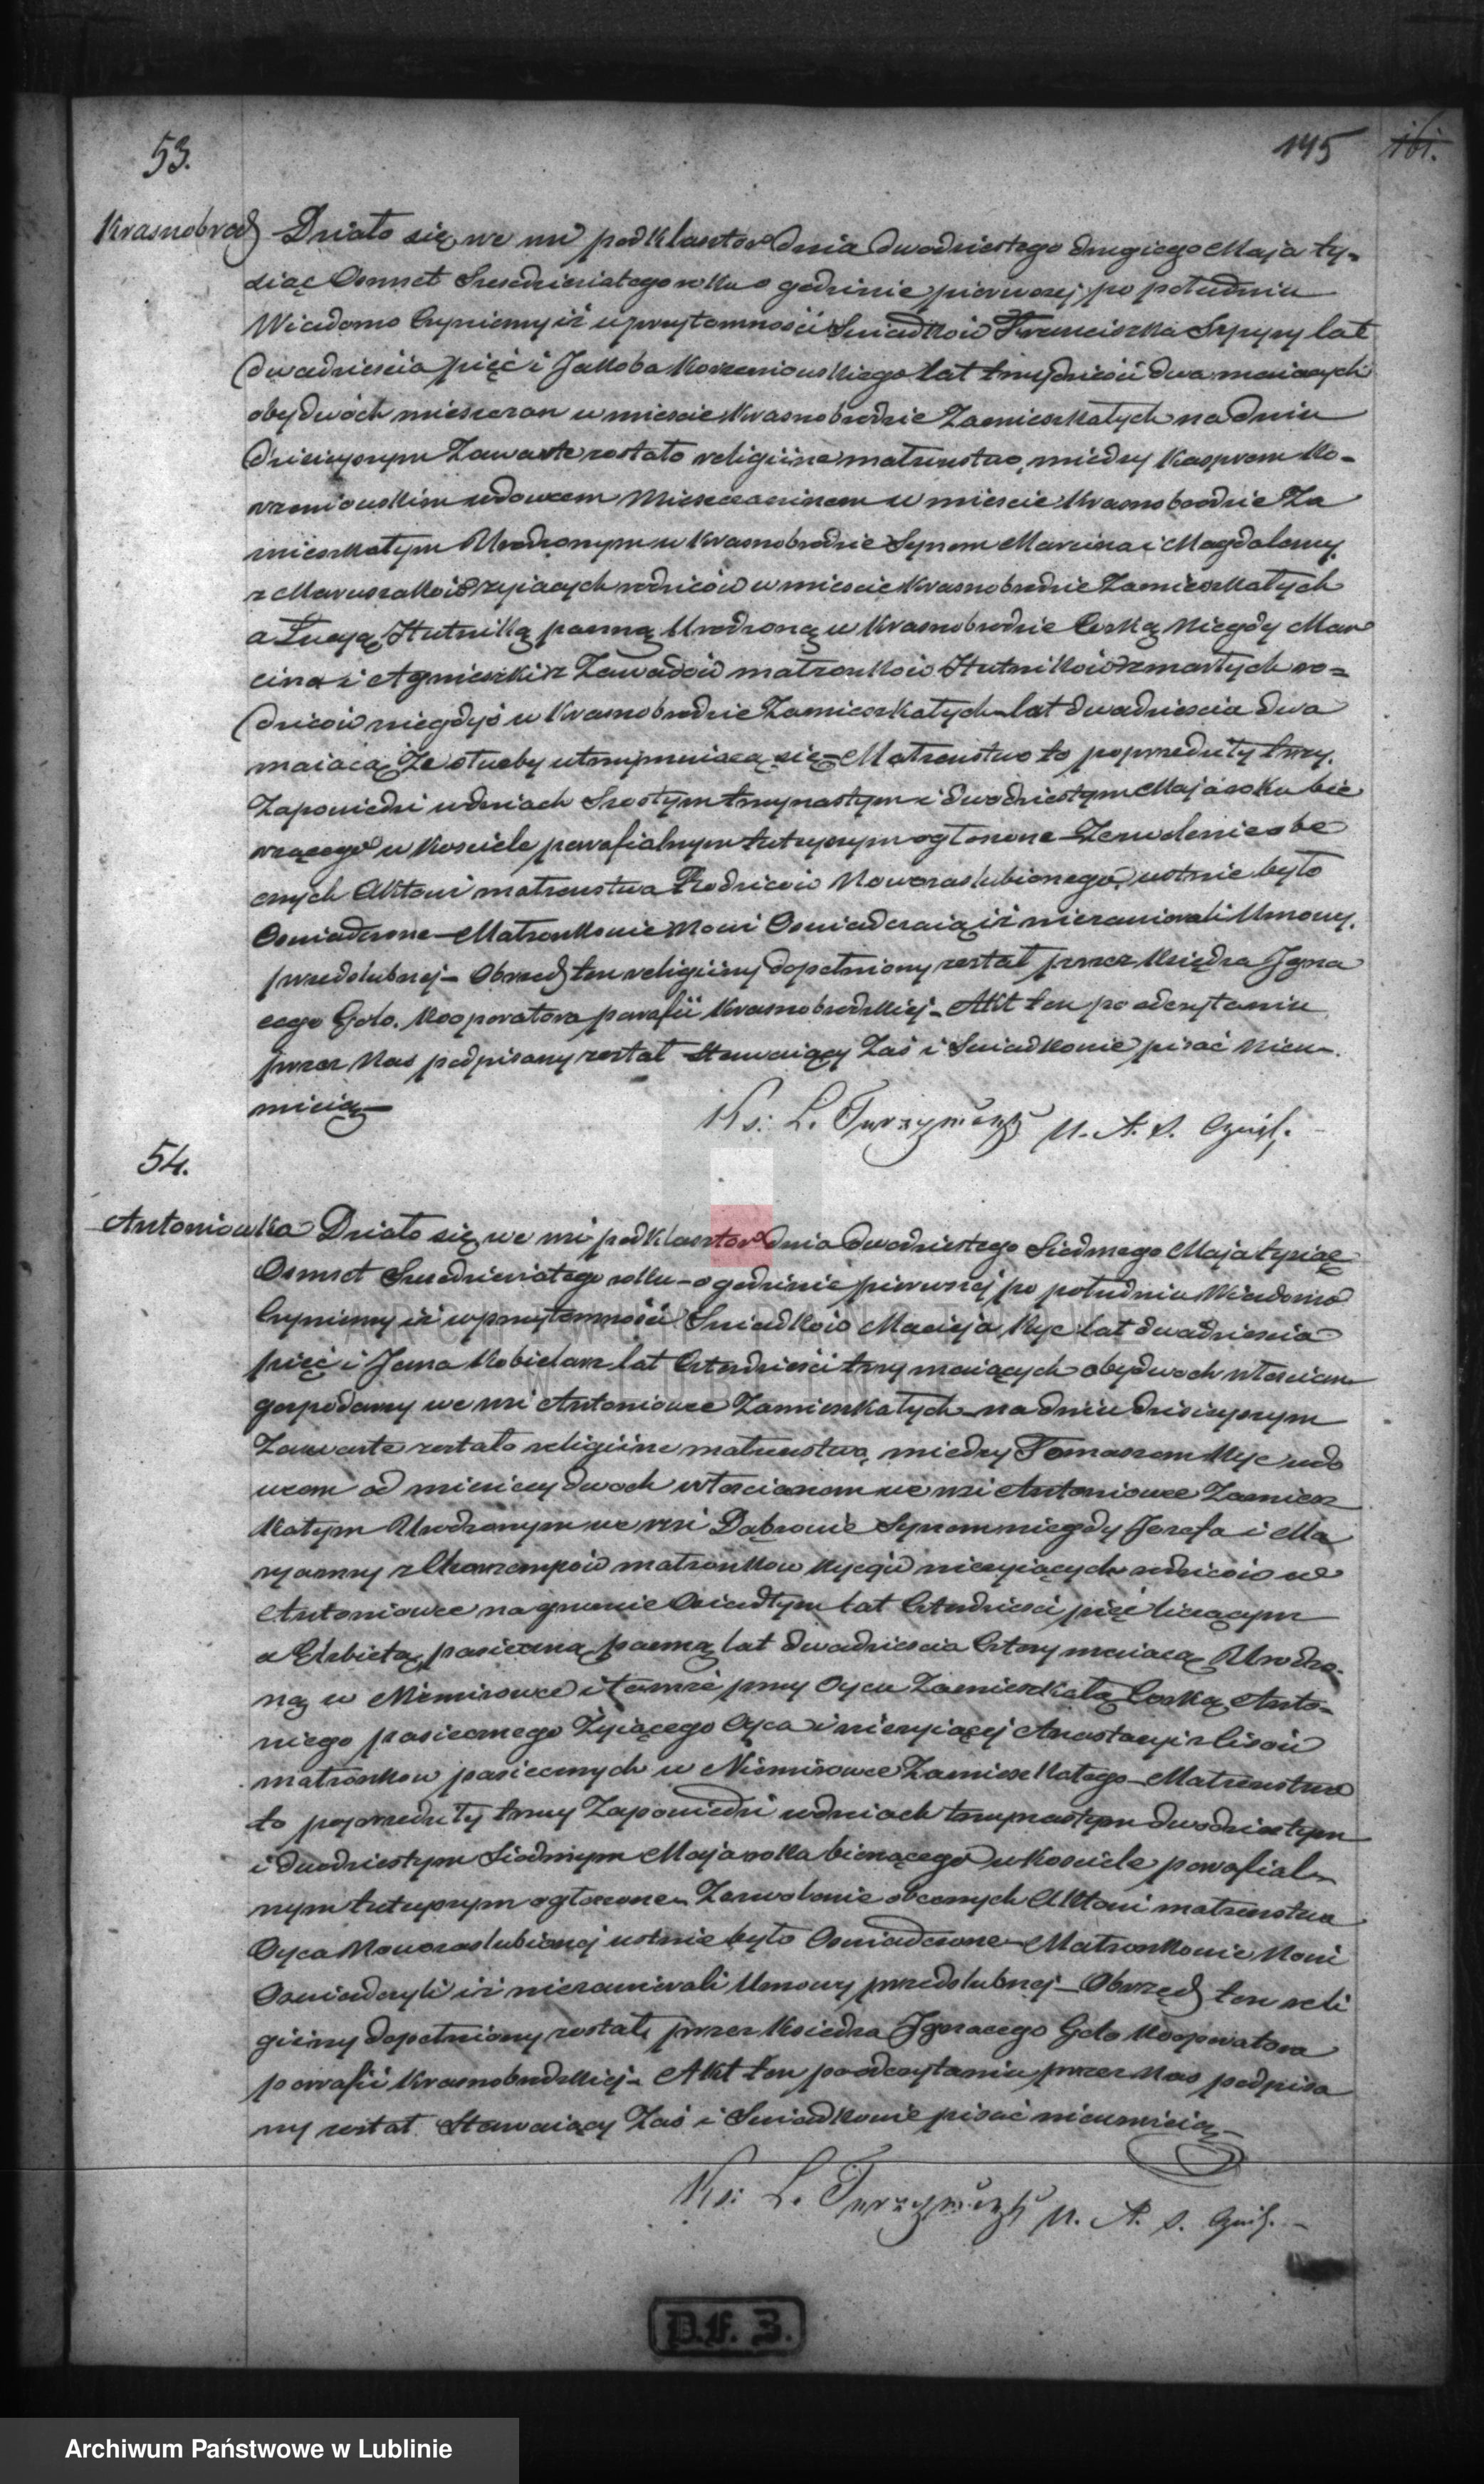 53.
145 161.
Krasnobrod Działo się we wsi podklasztor dnia dwudziestego drugiego Maja ty-
siąc Osmset Szesedziesiatego roku o godzinie pierwszej po południu
Wiadomo Czyniemy iż w przytomności Swiadków Franciszka Szpyry lat
dwadzieścia pięć i Jakoba Korzeniowskiego lat trzydzieści dwa maiących
obydwóch mieszczan w mieście Krasnobrodzie Zamieszkałych na dniu
dzisieyszym Zawarte zostało religiine małżeństwo, między Kasprem Ko-
rzeniowskim wdowcem Mieszczaninem w mieście Krasnobrodzie Za
mieszkałym Urodzonym w Krasnobrodzie Synem Marcina i Magdaleny
z Maruszaków żyiących rodziców w mieście Krasnobrodzie Zamieszkałych
a Łucyą Hutniką panną Urodzoną w Krasnobrodzie Corką Niegdy Mar
cina i Agnieszki z Zawadów małżonków Hutników zmarłych ro-
dziców niegdyś w Krasnobrodzie Zamieszkałych lat dwadzieścia dwa
maiącą Ze służby utrzymuiącą się Małżeństwo to poprzedziły trzy
Zapowiedzi w dniach Szóstym trzynastym i dwudziestym Maja roku bie
rzącego w Kościele parafialnym tutejszym ogłoszone Zezwolenie obe
cnych Aktowi małżeństwa Rodziców Nowozaslubionego ustnie było
Oswiadczone Małżonkowie Nowi Oswiadczaią iż niezawierali Umowy
przedslubnej Obrzęd ten religiiny dopełniony został przez Księdza Igna
cego Golo. Kooporatora parafii Krasnobrodzkiej Akt ten po odczytaniu
przez Nas podpisany został Stawaiący Zaś i Swiadkowie pisać Nieu-
mieią
Ks: L. U. A. S. Cywil.
54.
Antoniowka Działo się we wsi podklasztor dnia dwudziestego Siedmego Maja tysiąc
Osmset Szesedziesiatego roku o godzinie pierwszej po południu Wiadomo
Czyniemy iż w przytomności Swiadków Macieja Kyc lat dwadzieścia
pięć i Jana Kobielarz lat Czterdzieści trzy maiących obydwoch włościan
gospodarzy we wsi Antoniowce Zamieszkałych na dniu dzisieyszym
Zawarte zostało religiine małżeństwo, między Tomaszem Kyc wdo
wcem od miesięcy dwoch włościanem we wsi Antoniowce Zamiesz
kałym Urodzonym we wsi Dąbrowie Synem niegdy Józefa i Ma
ryanny z małżonkow Kyców nieżyiących rodziców we
Antoniowce na gruncie Osiadłym lat Czterdzieści pięć liczącym
a Elżbietą pasieczną panną lat dwadzieścia Cztery maiącą Urodzo-
ną w Niemirowce i tamże przy Oycu Zamieszkałą Corką Anto-
niego pasiecznego Żyiącego Oyca i nieżyiącej Anastazyi z Lisów
małżonkow pasiecznych w Niemirowce Zamieszkałego Małżeństwo
to poprzedziły trzy Zapowiedzi w dniach trzynastym dwudziestym
i dwudziestym Siodmym Maja roku bierzącego w Kościele parafial
nym tutejszym ogłoszone Zezwolenie obecnych Aktowi małżeństwa
Oyca Nowozaslubionej ustnie było Oswiadczone Małżonkowie Nowi
Oswiadczyli iż niezawierali Umowy przedslubnej Obrzęd ten reli
giiny dopełniony został przez Księdza Ignacego Golo Kooporatora
parafii Krasnobrodzkiej Akt ten po odczytaniu przez Nas podpisa
ny został Stawaiący Zaś i Swiadkowie pisać nieumieią
Ks: L. U. A. S. Cywil.
D.F. 3.
ARCHIWUM PAŃSTWOWE
W LUBLINIE
Archiwum Państwowe w Lublinie